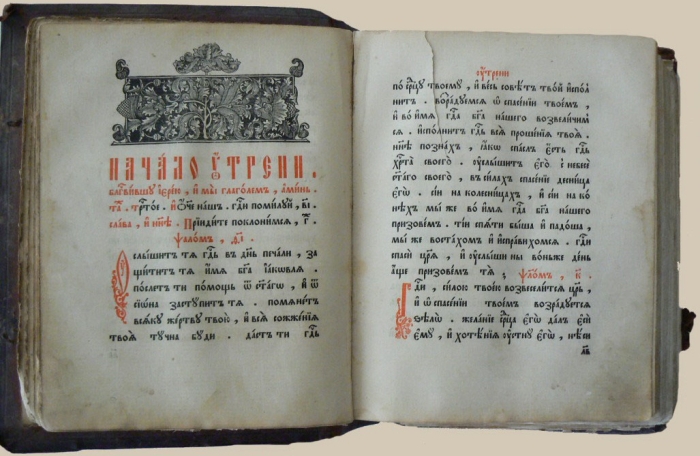 НАЧА́ЛО ОУ҆́ТРЕНИ.
Бл҃гви́вшу і҆ере́ю, и҆ мы̀ глаго́лемъ, а҆ми́нь.
Трⷭ҇то́е. и҆ ѻ҆́ч҃е на́шъ. гдⷭ҇и поми́луй, в҃і
сла́ва, и҆ ны́нѣ. Прїиди́те поклони́мсѧ, г҃.
Ѱало́мъ, ѳ҃і.
Оу҆слы́шитъ тѧ̀ гдⷭ҇ь въ де́нь печа́ли, за
щи́титъ тѧ̀ и҆́мѧ бг҃а і҆а́кѡвлѧ.
по́слетъ тѝ по́мощь ѿ ст҃а́гѡ, и҆ ѿ
сїѡ́на засту́питъ тѧ̀. помѧне́тъ
всѧ́ку же́ртву твою̀, и҆ всѧ̀ сожже́нїѧ
твоѧ̀ ту́чна бу́ди. да́стъ тѝ гдⷭ҇ь
Оу҆́трени
по се́рдцу твоему̀, и҆ ве́сь совѣ́тъ тво́й и҆спо́л
нитъ. возра́дуемсѧ ѡ҆ спасе́нїи твое́мъ,
и҆ во и҆́мѧ гдⷭ҇а бг҃а на́шего возвели́чим
сѧ. и҆спо́лнитъ гдⷭ҇ь всѧ̀ проше́нїѧ твоѧ̀.
ны́нѣ позна́хъ, ꙗ҆́кѡ спа́слъ є҆́сть гдⷭ҇ь
хрⷭ҇та̀ своего̀. оу҆слы́шитъ є҆го̀ с̾ небесѐ
ст҃а́го своегѡ̀, въ си́лахъ спасе́нїе десни́ца
є҆гѡ̀. сі́и на колесни́цахъ, и҆ сі́и на ко
не́хъ мы́ же во и҆́мѧ гдⷭ҇а бг҃а на́шего
призове́мъ. ті́и спѧ́ти бы́ша и҆ падо́ша,
мы́ же воста́хомъ и҆ и҆спра́вихомсѧ. гдⷭ҇и
спасѝ цр҃ѧ̀, и҆ оу҆слы́ши ны̀ во́ньже де́нь
а҆́ще призове́мъ тѧ̀; ѱало́мъ, к҃.
Гдⷭ҇и, си́лою твое́ю возвесели́тсѧ цр҃ь,
и҆ ѡ҆ спасе́нїи твое́мъ возра́дуетсѧ
ѕѣлѡ̀. жела́нїе се́рдца є҆гѡ̀ да́лъ є҆сѝ
є҆му̀, и҆ хотѣ́нїѧ оу҆стну̀ є҆гѡ̀, нѣ́си